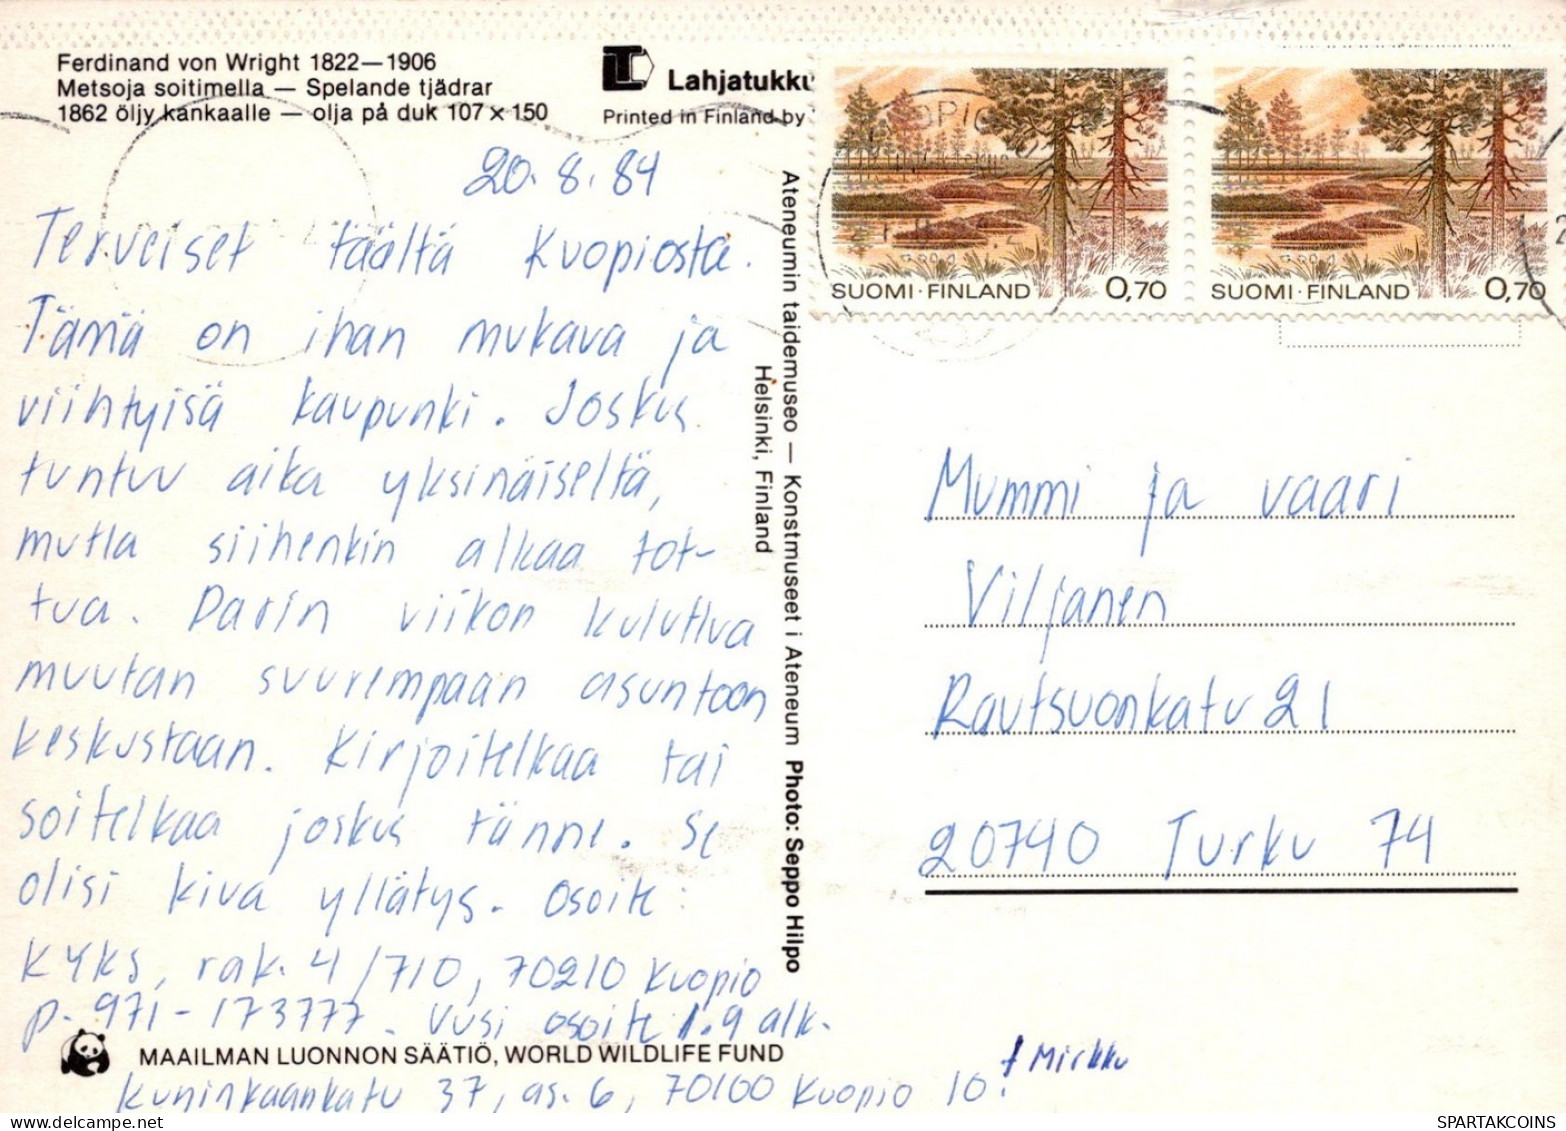 Ferdinand von Wright 1822—1906
Metsoja soitimella — Spelande tjädrar
1862 öljy kankaalle — olja på duk 107 x 150
Lahjatukku
Printed in Finland by
20.8.84
Terveiset täältä Kuopiosta.
Tämä on ihan mukava ja
viihtyisä kaupunki. Joskus
tuntuu aika yksinäiseltä,
mutta siihenkin alkaa tot-
tua. Parin viikon kuluttua
muutan suurempaan asuntoon
keskustaan. Kirjoitelkaa tai
soitelkaa joskus tänne. Se
olisi kiva yllätys. Osoite:
KYKS, rak. 4/710, 70210 Kuopio
p. 971-173777. Uusi osoite 1.9 alk.
Kuninkaankatu 37, as. 6, 70100 Kuopio 10.
Mirkku
MAAILMAN LUONNON SÄÄTIÖ, WORLD WILDLIFE FUND
Ateneumin taidemuseo — Konstmuseet i Ateneum Photo: Seppo Hilpo
Helsinki, Finland
SUOMI·FINLAND 0,70
SUOMI·FINLAND 0,70
Mummi ja vaari
Viljanen
Rautsuonkatu 21
20740 Turku 74
SPARTAKCOINS